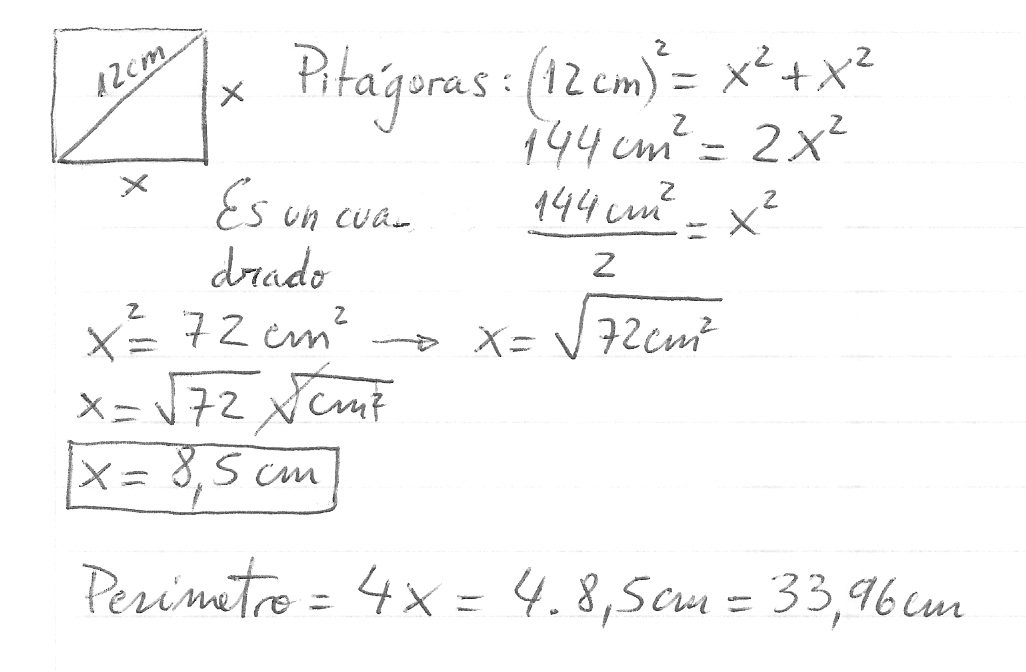 12cm
x
x
Pitágoras: (12cm)² = x² + x²
144cm² = 2x²
144cm²/2 = x²
Es un cua-
drado
x² = 72cm² → x = √72cm²
x = √72 √cm²
x = 8,5 cm
Perimetro = 4x = 4.8,5cm = 33,96cm